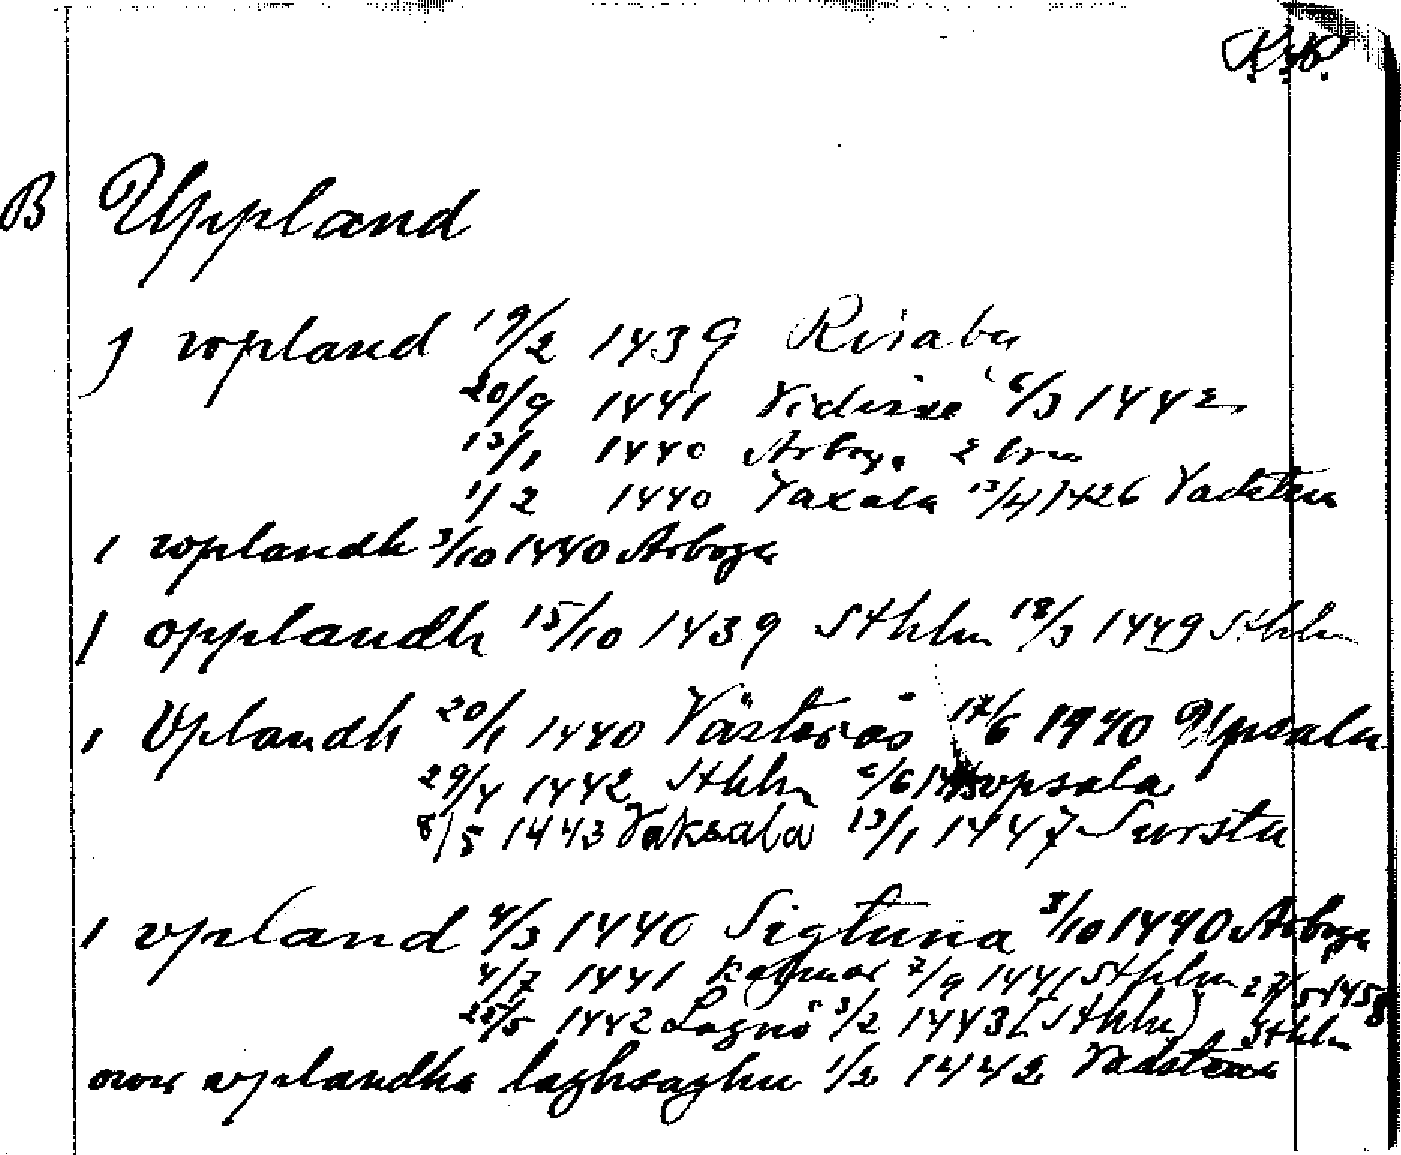 B Uppland
j wpland 19/2 1439 Risaby
20/9 1441 6/3 1442
13/1 1440 Arboga
1/2 1440 Vaxala 13/4 1426 Vadstena
i wplandh 3/10 1440 Arboga
j opplandh 15/10 1439 Sthlm 18/3 1449 Sthlm
i Vplandh 20/1 1440 Västerås 17/6 1440 Upsala
29/4 1442 Sthlm upsala
8/5 1443 Vaksala 13/1 1447 Snrsta
i vpland 4/3 1440 Sigtuna 3/10 1440 Arboga
4/7 1441 Kalmar 7/9 1441 Sthlm 27/5 1458
25/5 1442 Lagnö 3/2 1443 [Sthlm] Sthlm
owir vplandha laghsaghu 1/2 1442 Vadstena